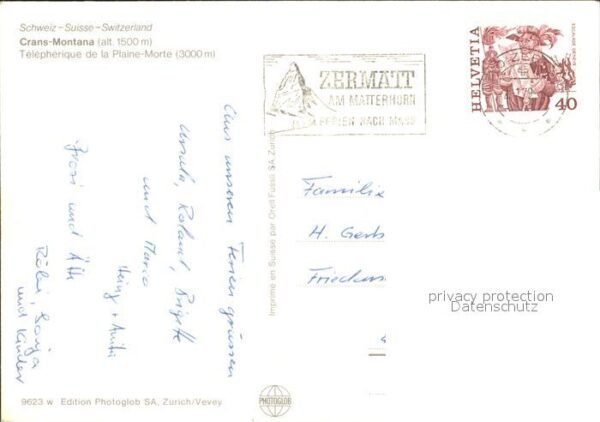 Schweiz – Suisse – Switzerland
Crans-Montana (alt. 1500 m)
Téléphérique de la Plaine-Morte (3000 m)
ZERMATT
AM MATTERHORN
FERIEN NACH MASS
HELVETIA
40
Aus unseren Ferien grüssen
Ursula, Roland, Brigitte
und Mario
Heinz + Anita
Frosi und Ätti
Röbi, Sonja
und Kinder
Imprimé en Suisse par Orell Füssli SA Zurich
Familie
H. Gerb
Friedens
privacy protection
Datenschutz
9623 w Edition Photoglob SA, Zurich/Vevey
PHOTOGLOB